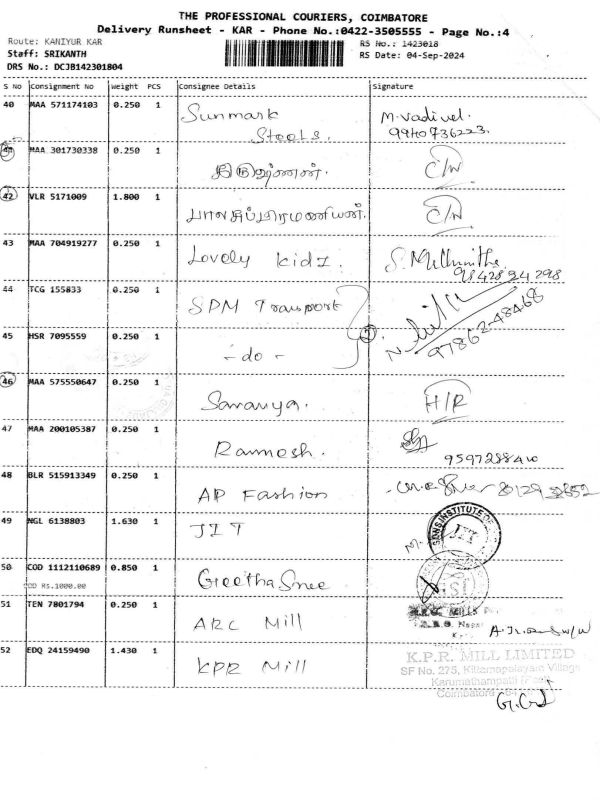 THE PROFESSIONAL COURIERS, COIMBATORE
Delivery Runsheet - KAR - Phone No.:0422-3505555 - Page No.:4
Route: KANIYUR KAR
RS No.: 1423018
Staff: SRIKANTH
RS Date: 04-Sep-2024
DRS No.: DCJB142301804
S No Consignment No Weight PCS Consignee Details Signature
40 MAA 571174103 0.250 1 Sunmark
Steels. M. Vadivel.
9940736223.
41 MAA 301730338 0.250 1 கிருஷ்ணன். C/N
42 VLR 5171009 1.800 1 பாலசுப்பிரமணியன். C/N
43 MAA 704919277 0.250 1 Lovely Kidz. S.
98428 24298
44 TCG 155833 0.250 1 SPM Transport
97862-48468
45 HSR 7095559 0.250 1 -do- 2
46 MAA 575550647 0.250 1 Saranya. H/R
47 MAA 200105387 0.250 1 Ramesh.
48 BLR 515913349 0.250 1 AP Fashion
49 NGL 6138803 1.630 1 JIT M. JIT
50 COD 1112110689 0.850 1 Geetha Sree
COD RS.1000.00
51 TEN 7801794 0.250 1 ARC Mill
52 EDQ 24159490 1.430 1 KPR Mill
K.P.R. MILL LIMITED
SF No. 275, Kittampalayam Village
Karumathampatti (Post)
Coimbatore